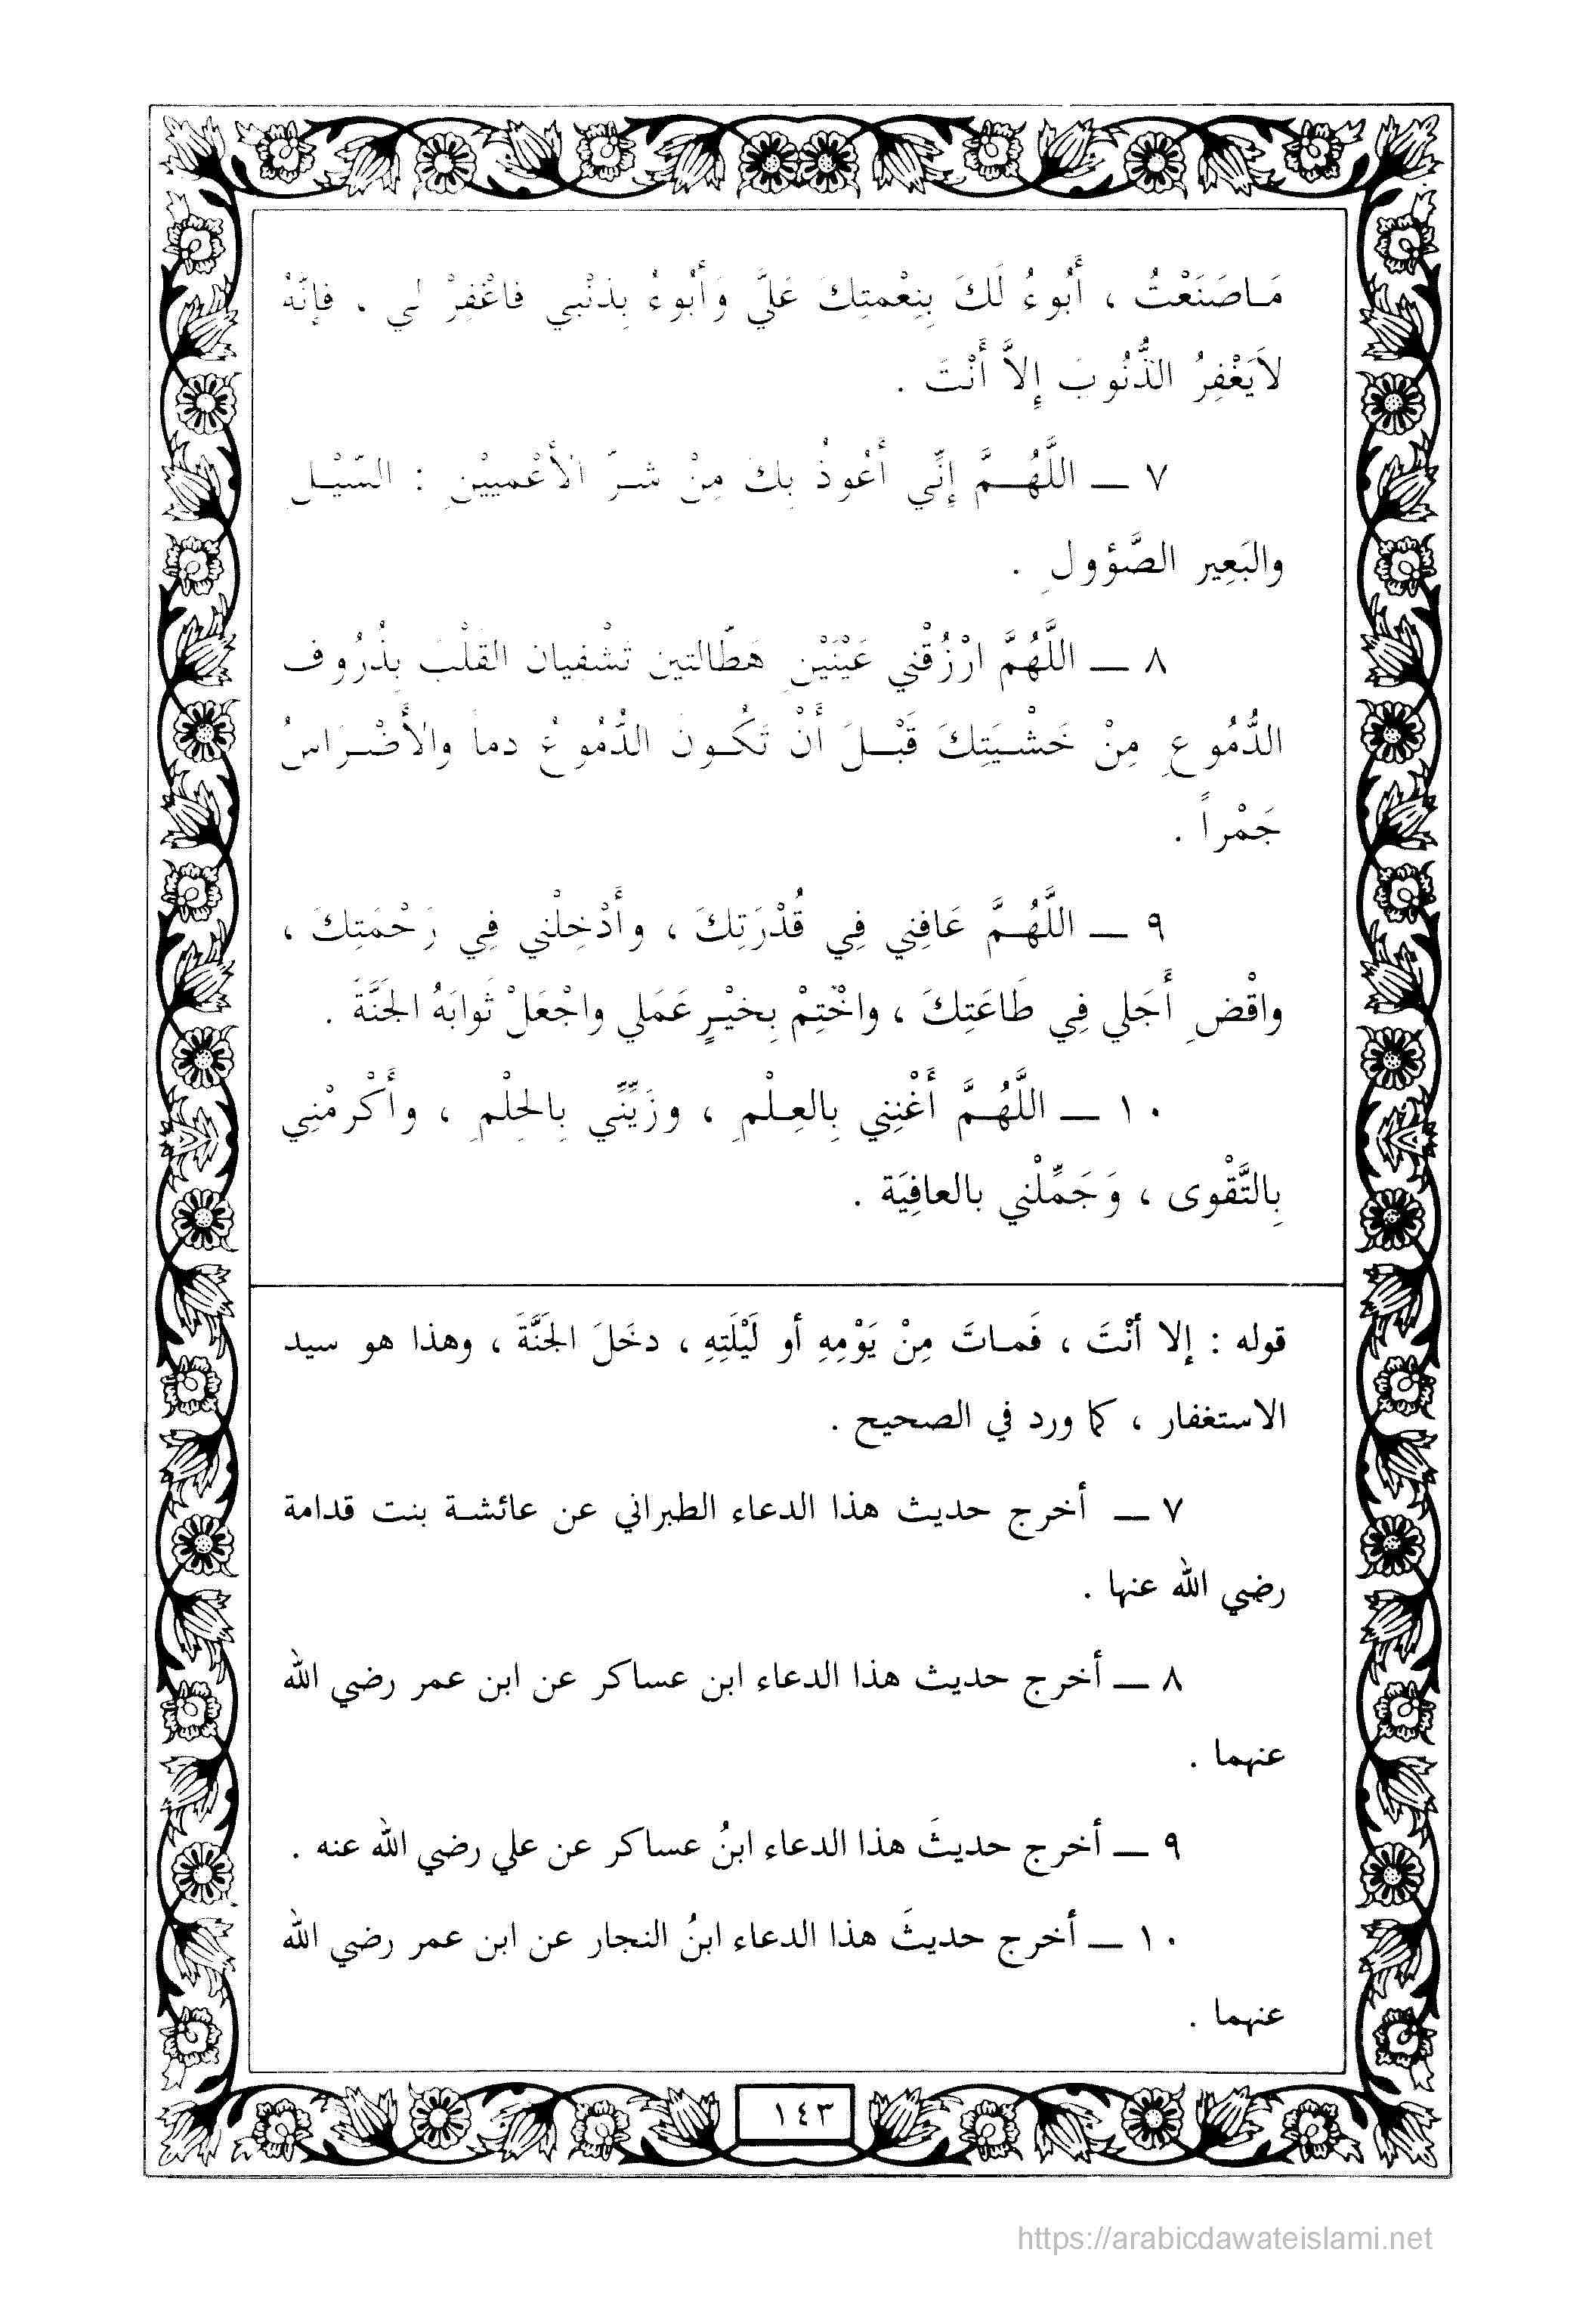 مَاصَنَعْتُ ، أَبُوءُ لَكَ بِنِعْمتِكَ عَليَّ وَأَبُوءُ بِذنْبي فاغْفِرْ لي ، فإنَّهُ
لاَيَغْفِرُ الذُّنُوبَ إِلاَّ أَنْتَ .
٧ ــ اللَّهُمَّ إِنِّي أَعُوذُ بِكَ مِنْ شرّ الأعْمييْنِ : السّيْلِ
والبَعِيرِ الصَّؤولِ .
٨ ــ اللَّهُمَّ ارْزُقْني عَيْنَيْنِ هَطّالتين تَشْفيان القَلْبَ بِذُرُوف
الدُّمُوعِ مِنْ خَشْيَتِكَ قَبْلَ أَنْ تَكُونَ الدُّمُوعُ دماً والأَضْرَاسُ
جَمْراً .
٩ ــ اللَّهُمَّ عَافِني فِي قُدْرَتِكَ ، وأَدْخِلْني فِي رَحْمَتِكَ ،
واقْضِ أَجَلي فِي طَاعَتِكَ ، واخْتِمْ بِخيْرٍ عَمَلي واجْعَلْ ثَوابَهُ الجَنَّةَ .
١٠ ــ اللَّهُمَّ أَغْنِني بِالعِلْمِ ، وزَيِّنِّي بِالحِلْمِ ، وأَكْرمْنِي
بِالتَّقْوى ، وَجَمِّلْني بالعافِيَة .
قوله : إلا أنْتَ ، فَماتَ مِنْ يَوْمِهِ أو لَيْلَتِهِ ، دخَلَ الجَنَّةَ ، وهذا هو سيد
الاستغفار ، كما ورد في الصحيح .
٧ ــ أخرج حديث هذا الدعاء الطبراني عن عائشة بنت قدامة
رضي الله عنها .
٨ ــ أخرج حديث هذا الدعاء ابن عساكر عن ابن عمر رضي الله
عنهما .
٩ ــ أخرج حديثَ هذا الدعاء ابنُ عساكر عن علي رضي الله عنه .
١٠ ــ أخرج حديثَ هذا الدعاء ابنُ النجار عن ابن عمر رضي الله
عنهما .
١٤٣
https://arabicdawateislami.net